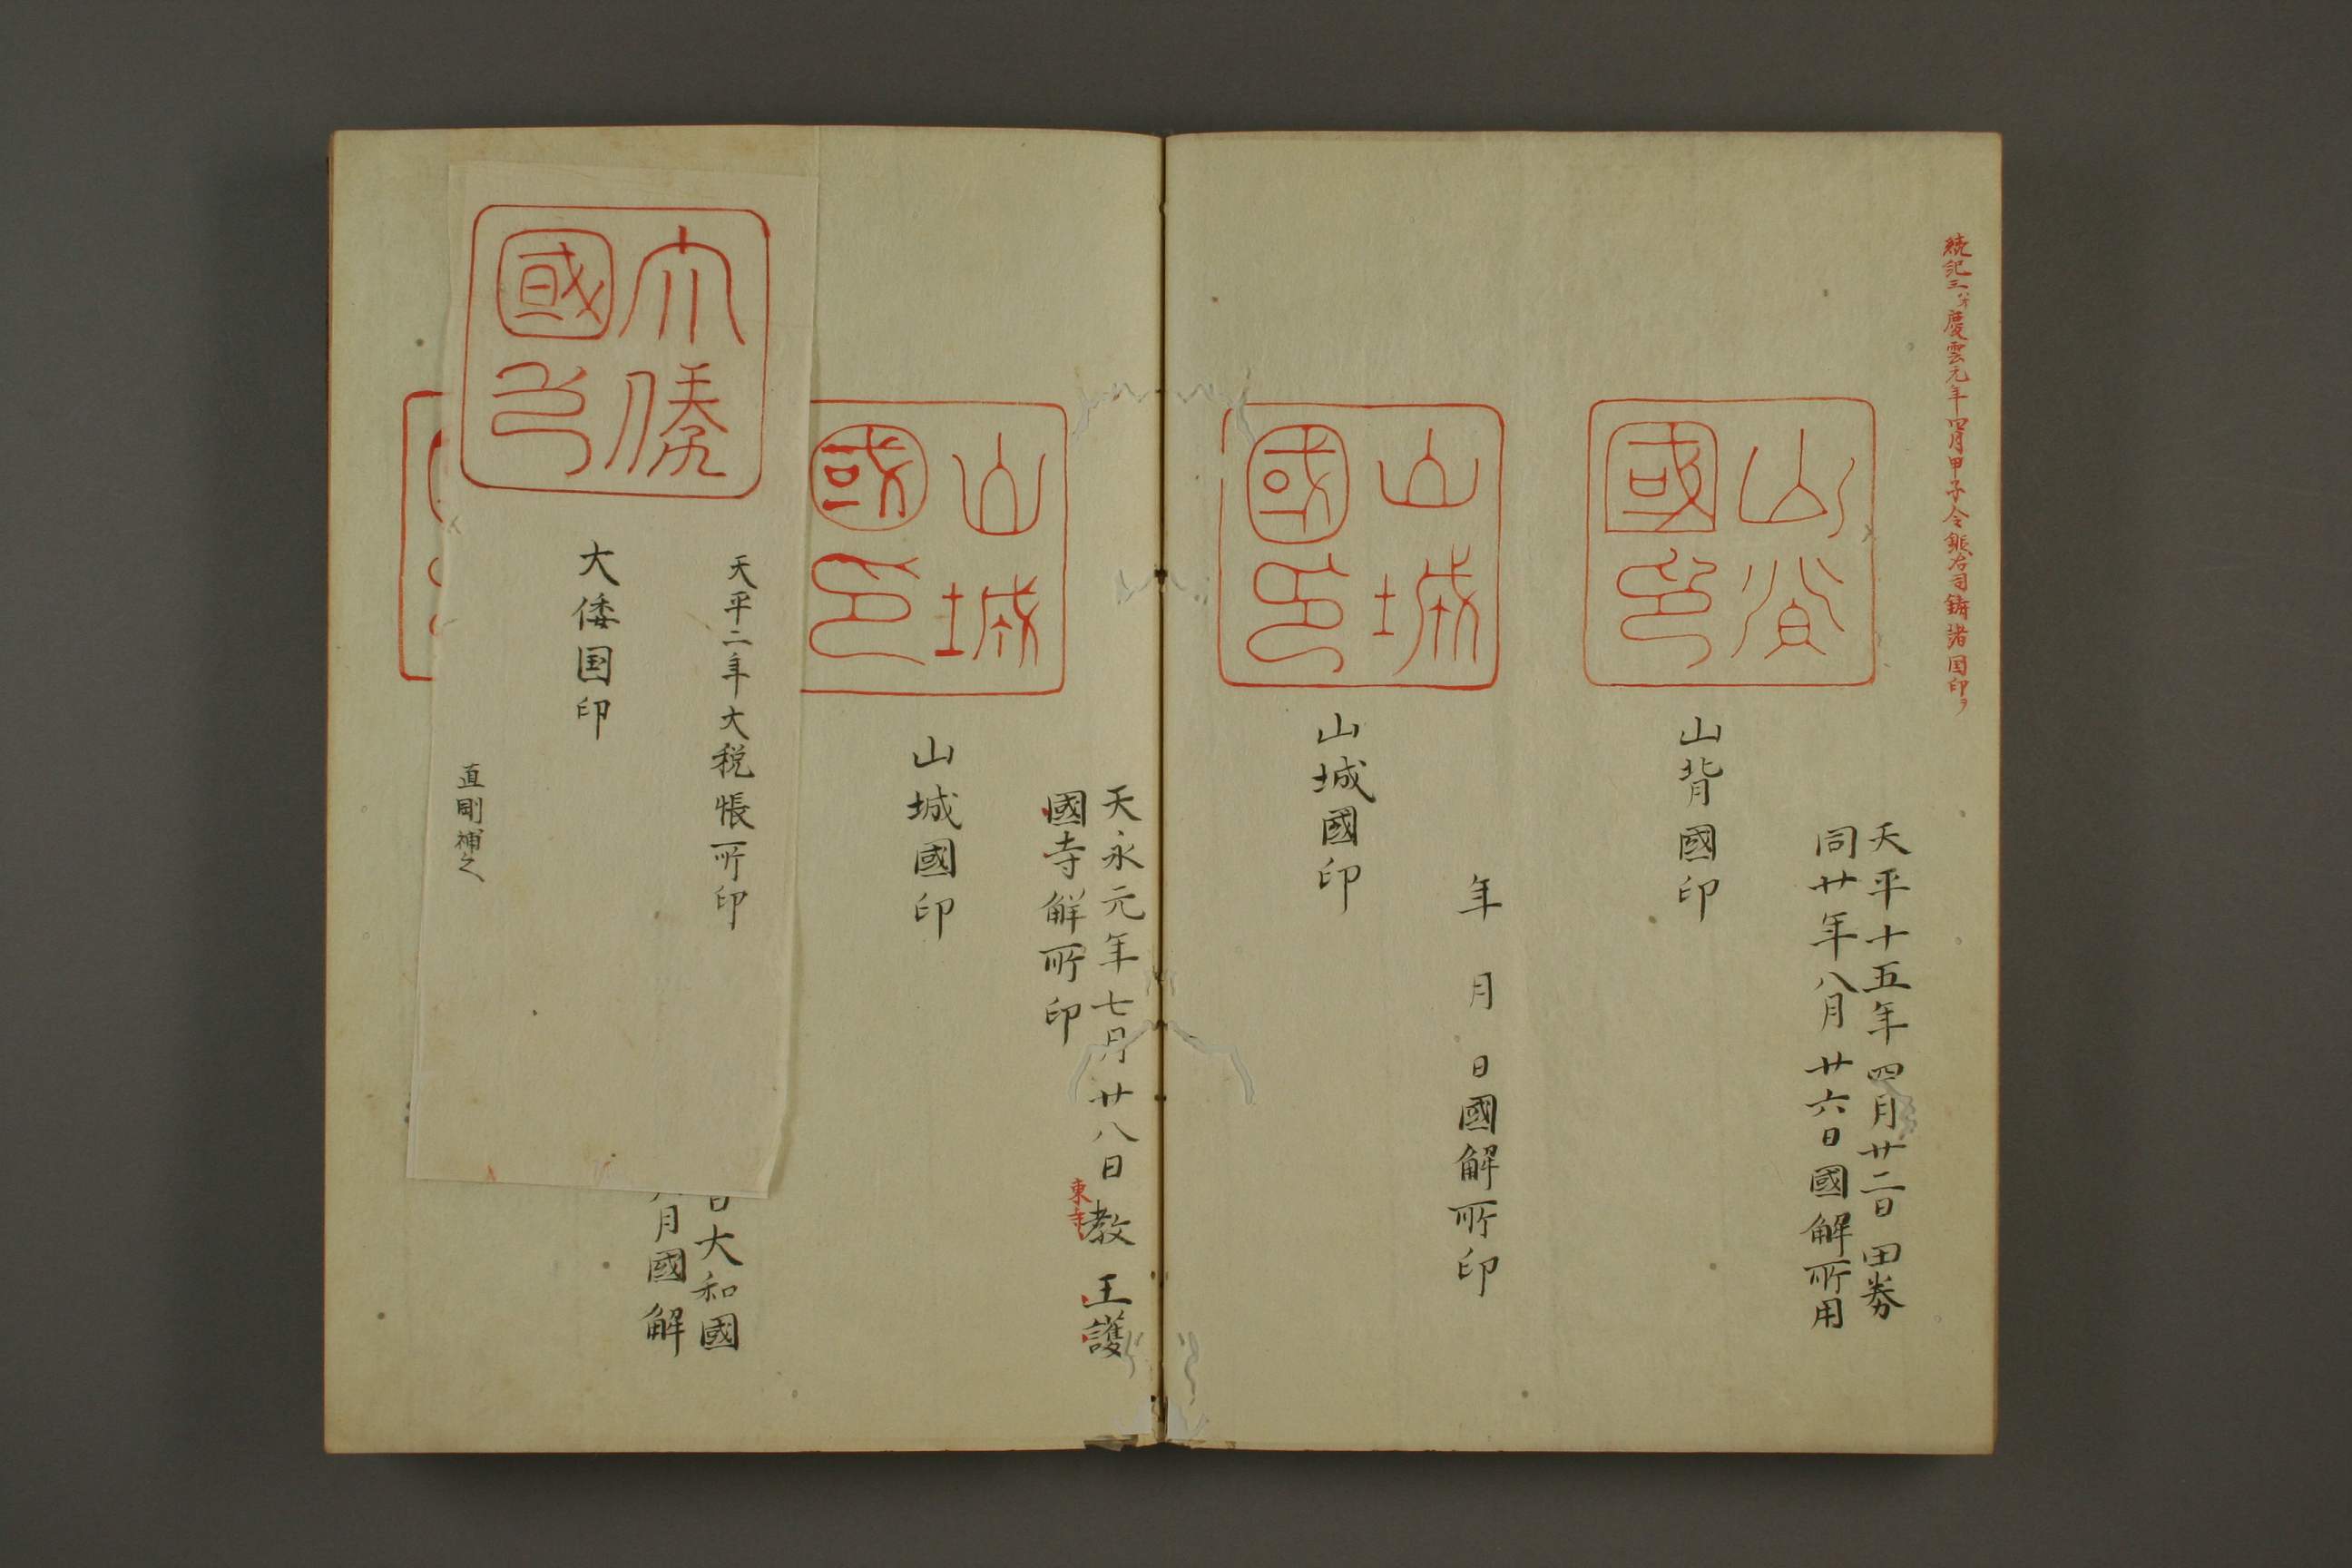 続記三慶雲元年四月甲子令鍛冶司鋳諸国印ヲ
天平十五年四月廿二日田券
同廿年八月廿六日國解所用
山背國印
山背國印
年　月　日國解所印
山城國印
山城國印
天永元年七月廿八日教王護
東寺
國寺解所印
山城國印
山城國印
日大和國
月國解
大倭國印
天平二年大税帳所印
大倭国印
直剛補之